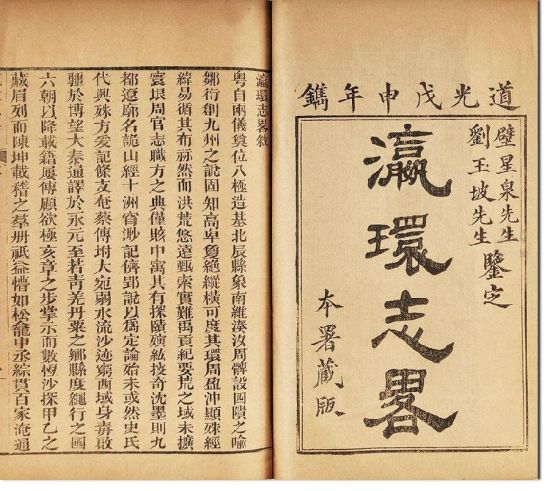 道光戊申年鐫
壁星泉先生
劉玉坡先生鑒定
瀛環志畧
本署藏版
瀛環志畧敘
粤自兩儀奠位八極造基北辰縣象南維湊沒周髀設四隤之喻
鄒衍創九州之說固知高卑夐絕縱橫可度其環周盈沖顯殊經
緯易循其布赫然而洪荒悠遠甄索實難禹貢紀要荒之域未擴
寰垠周官志職方之典僅賅中寓其有探賾紘技奇沈墨則九
都遼廓名詭山經十洲渺記儕郢說以為定論始未或然史氏
代興殊方爰記條支奄蔡傳坿大宛弱水流沙迹窮西域身毒啟
疆於博望大秦通譯於永元至若青羌丹粟之鄉縣度繩行之國
六朝以降載籍屢傳顧欲極亥章之步掌示而數恆沙探甲乙之
藏眉列而陳坤載稽之羣冊祇益懵如松龕中丞綜貫百家淹通